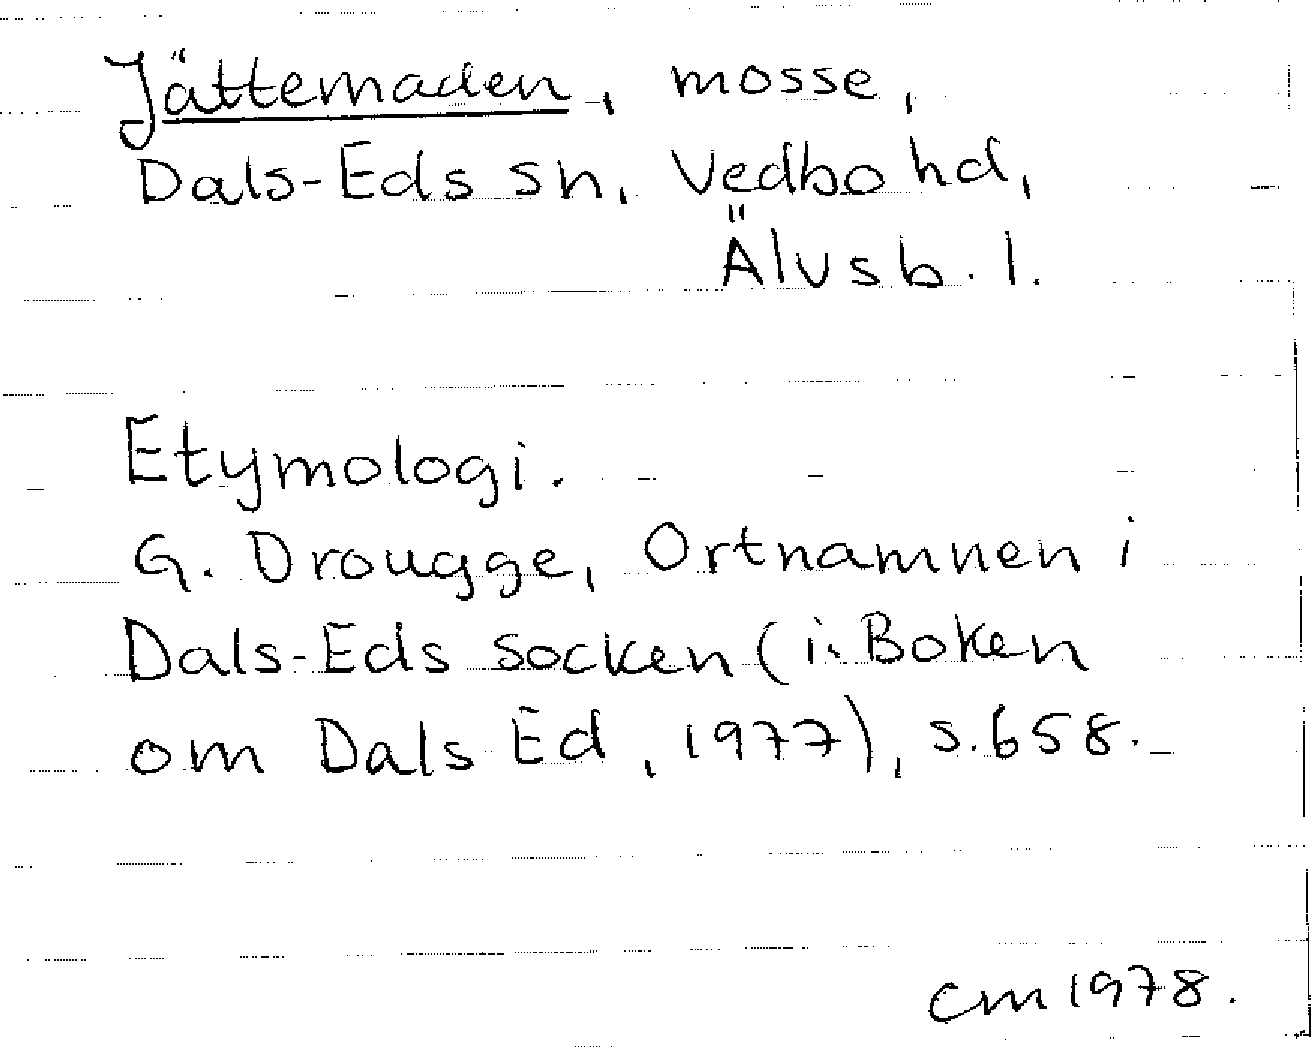 Jättemaden, mosse,
Dals-Eds sn, Vedbo hd,
Älvsb. l.
Etymologi.
G. Drougge, Ortnamnen i
Dals-Eds socken (i: Boken
om Dals Ed, 1977), s. 658.
cm 1978.